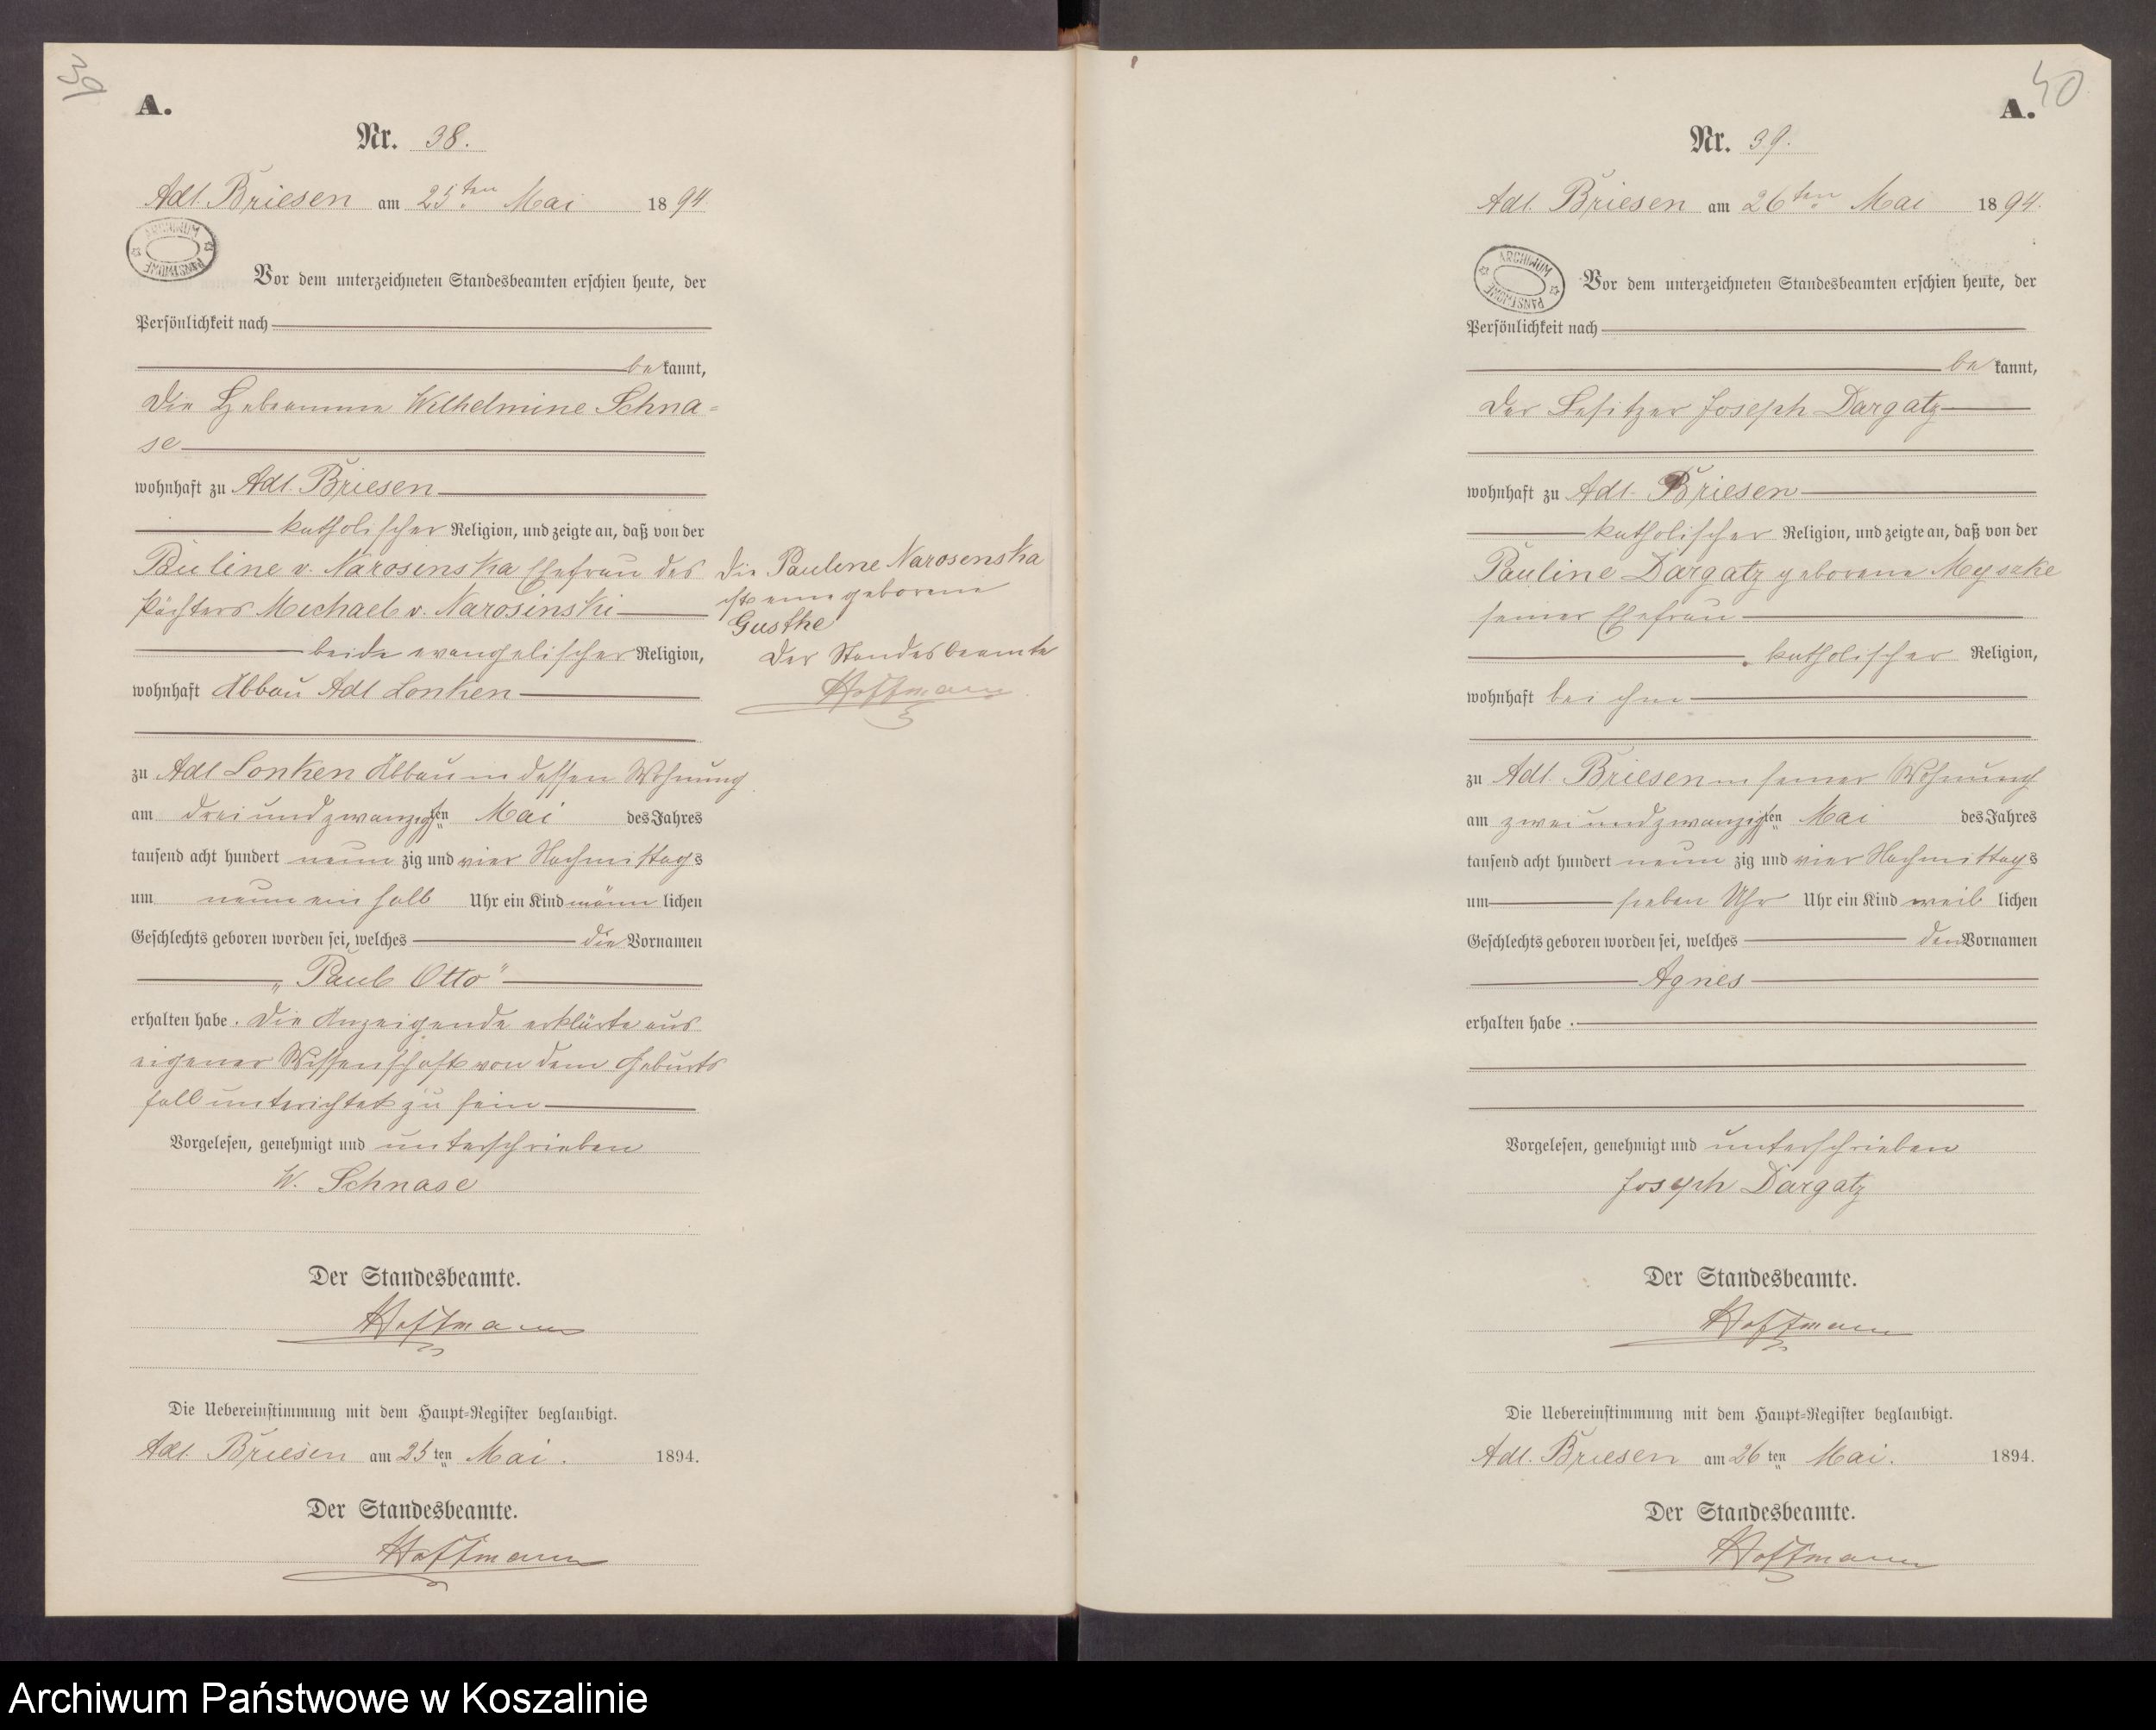 39
A.
Nr. 38.
Adl. Briesen am 25ten Mai 1894.
ARCHIWUM PAŃSTWOWE
Vor dem unterzeichneten Standesbeamten erschien heute, der
Persönlichkeit nach
bekannt,
die Hebeamme Wilhelmine Schna-
se
wohnhaft zu Adl. Briesen
katholischer Religion, und zeigte an, daß von der
Pauline v. Narosinska Ehefrau des
Pächters Michael v. Narosinski
beide evangelischer Religion,
wohnhaft Abbau Adl Lonken
zu Adl Lonken Abbau in dessen Wohnung
am dreiundzwanzigsten Mai des Jahres
tausend acht hundert neunzig und vier Nachmittags
um neun ein halb Uhr ein Kind männlichen
Geschlechts geboren worden sei, welches die Vornamen
„Paul Otto"
erhalten habe. Die Anzeigende erklärte aus
eigener Wissenschaft von dem Geburts
fall unterichtet zu sein
Vorgelesen, genehmigt und unterschrieben
W. Schnase
Der Standesbeamte.
Hoffmann
Die Uebereinstimmung mit dem Haupt-Register beglaubigt.
Adl. Briesen am 25ten Mai. 1894.
Der Standesbeamte.
Hoffmann
Die Pauline Narosenska
ist eine geborene
Gusthe
Der Standesbeamte
Hoffmann
40
A.
Nr. 39.
Adl. Briesen am 26ten Mai 1894.
ARCHIWUM PAŃSTWOWE
Vor dem unterzeichneten Standesbeamten erschien heute, der
Persönlichkeit nach
bekannt,
der Besitzer Joseph Dargatz
wohnhaft zu Adl. Briesen
katholischer Religion, und zeigte an, daß von der
Pauline Dargatz geborene Myszke
seiner Ehefrau
katholischer Religion,
wohnhaft bei ihm
zu Adl. Briesen in seiner Wohnung
am zweiundzwanzigsten Mai des Jahres
tausend acht hundert neunzig und vier Nachmittags
um sieben Uhr Uhr ein Kind weiblichen
Geschlechts geboren worden sei, welches den Vornamen
Agnes
erhalten habe.
Vorgelesen, genehmigt und unterschrieben
Joseph Dargatz
Der Standesbeamte.
Hoffmann
Die Uebereinstimmung mit dem Haupt-Register beglaubigt.
Adl. Briesen am 26ten Mai. 1894.
Der Standesbeamte.
Hoffmann
Archiwum Państwowe w Koszalinie